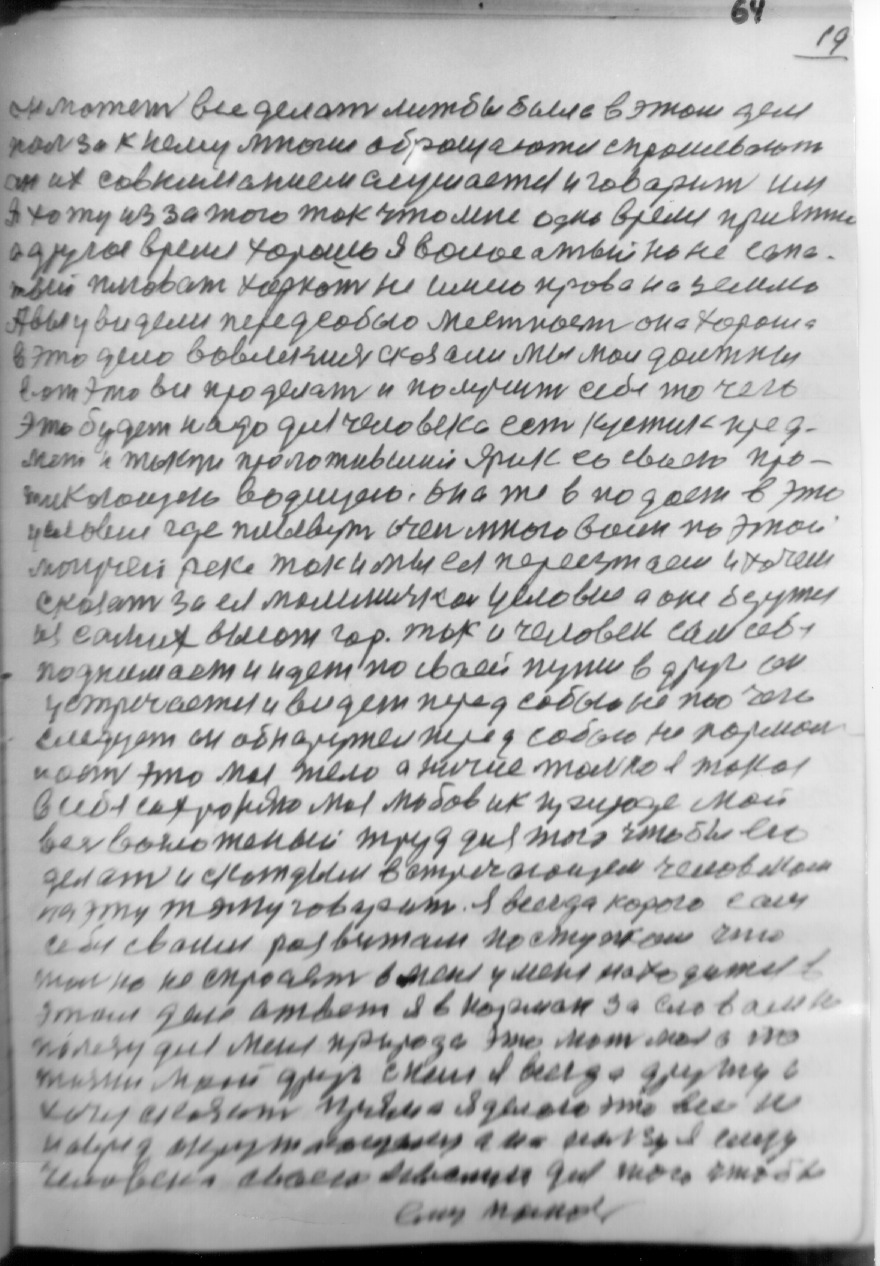 64
19
он может все делат лижбы была в этом деле
полза к нему многие обращаются спрашевают
он их совниманием слушается и говарит им
Я хожу из за того так что мне одно время приятно
а другое время хорошо я волосатый но не сапа-
тый плюват харкат не имею права на землю
А вы увидели перед собою местност она хороша
в это дело вовлеклися сказали мы мол должны
вот это все проделат и получит себе то чего
это будет надо для человека ест кустик пред-
мет и проложивший Ярик со своею про-
текающею водицею. она же впадает в это
условие где плывут очен много воды по этой
могучей реке так и мы ея переезжаем и хочем
сказат за ея условие а оне берутся
из самих высот гор. так и человек сам себя
поднимает и идет по своей пути вдруг он
устречается и видет перед собою не то чего
следует он обнаружел перед собою не нормал
ност это мое тело а ничие толко я такое
в себе сохроняю моя любов ик природе мой
вся положеный труд для того чтобы его
делат и скаждым встречающем человеком
на эту тэму говарит. Я всегда корого сам
себя своим развитам поступкам что
толко не спросят в мене у мене находится в
этом деле атвет я в карман за словам не
полезу для мене природа это мат моя а по
жизни мой друг с ним я всегда дружу а
хочу сказат прямо я делаю это все не
навред а на ползу я
человека своего для того чтобы
ему